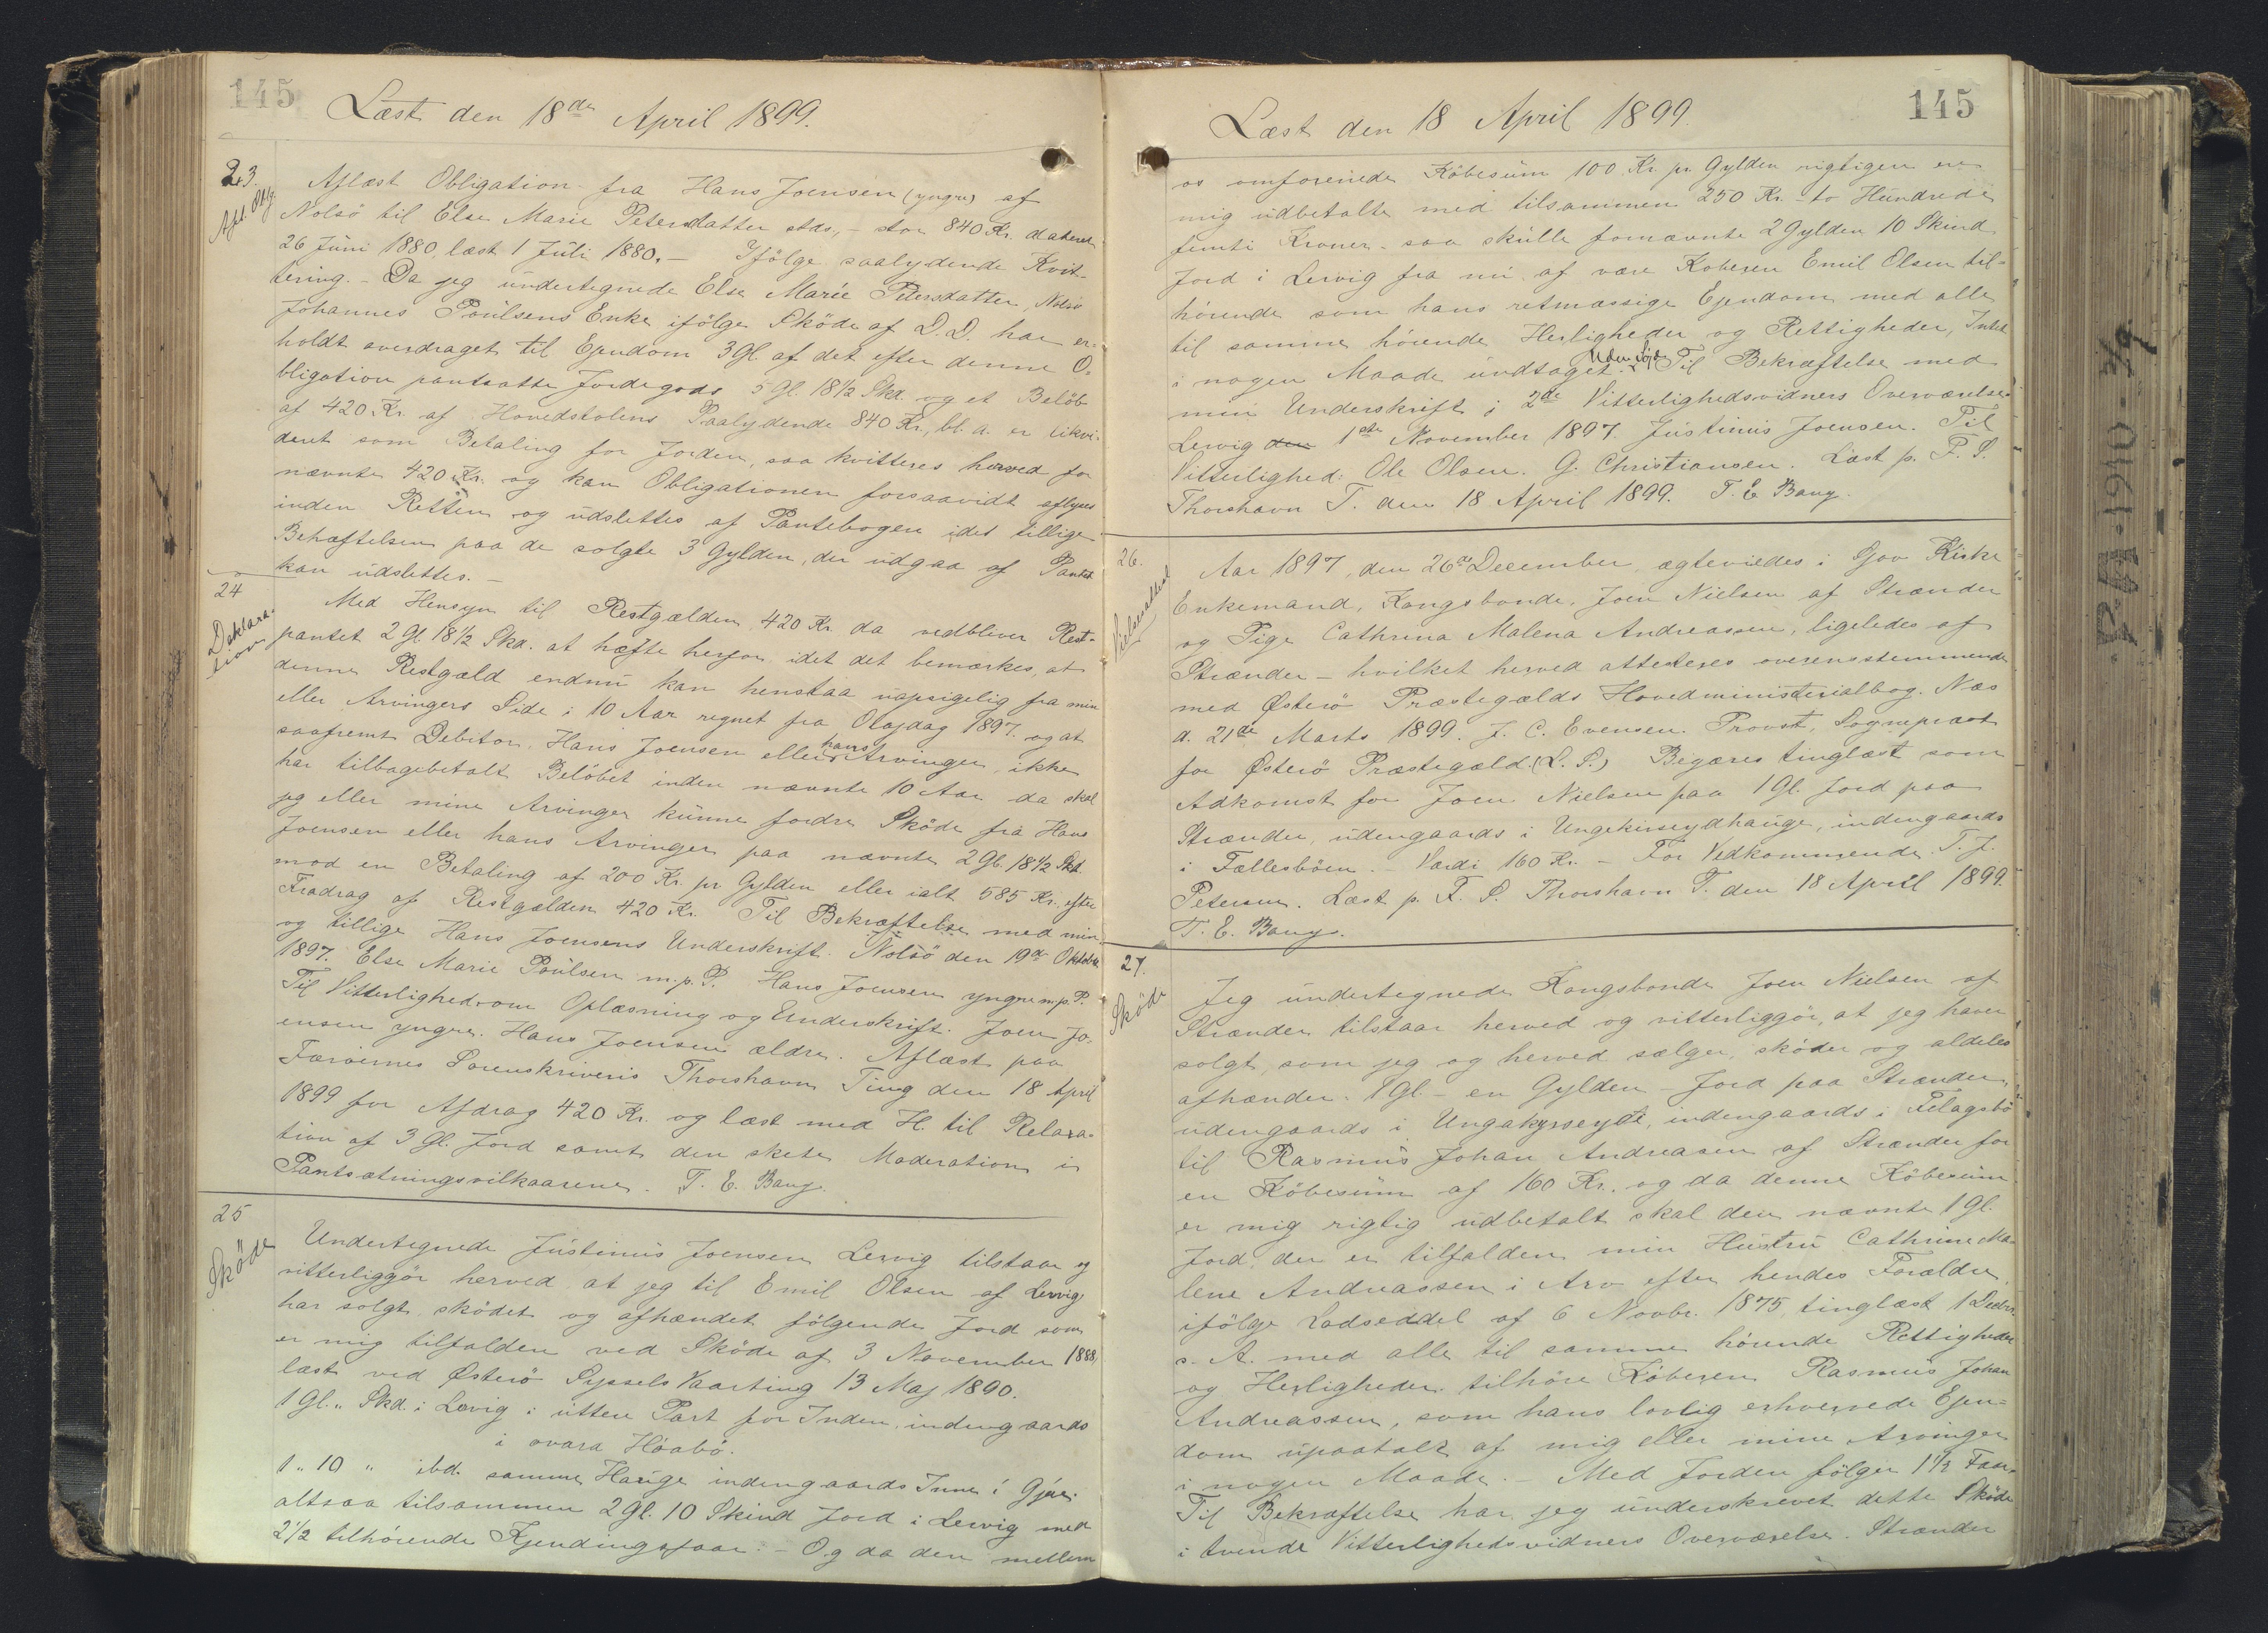 145
Læst den 18de April 1899.
23.
Afl. Obg.
Aflæst Obligation fra Hans Joensen (yngre) af
Nolsö til Else Marie Petersdatter stds, - stor 840 Kr. dateret
26 Juni 1880, læst 1 Juli 1880. - Ifölge saalydende Kvit-
tering. - Da jeg undertegnede Else Marie Petersdatter, Nolsö
Johannes Poulsens Enke ifölge Sköde af D.D. har er-
holdt overdraget til Ejendom 3 Gl. af det efter denne O-
bligation pantsatte Jordegods 5 Gl. 18 1/2 Skd. og et Belöb
af 420 Kr. af Hovedstolens Paalydende 840 Kr., bl. a. er likvi-
deret som Betaling for Jorden, saa kvitteres herved for
nævnte 420 Kr. og kan Obligationen forsaavidt aflyses
inden Retten og udslettes af Pantebogen idet tillige
Behæftelsen paa de solgte 3 Gylden, der udgaa af Pantet
kan udslettes. -
24
Deklara-
tion
Med Hensyn til Restgælden 420 Kr. da vedbliver Rest-
pantet 2 Gl. 18 1/2 Skd. at hæfte herfor idet det bemærkes, at
denne Restgæld endnu kan henstaa uopsigelig fra min
eller Arvingers Side i 10 Aar regnet fra Olajdag 1897. og at
saafremt Debitor, Hans Joensen eller hans Arvinger, ikke
har tilbagebetalt Belöbet inden nævnte 10 Aar da skal
jeg eller mine Arvinger kunne fordre Sköde fra Hans
Joensen eller hans Arvinger paa nævnte 2 Gl. 18 1/2 Skd.
mod en Betaling af 200 Kr. pr Gylden eller ialt 585 Kr. efter
Fradrag af Restgælden 420 Kr. Til Bekræftelse med min
og tillige Hans Joensens Underskrift. Nolsö den 19de Oktober
1897. Else Marie Poulsen m.p.P. Hans Joensen yngre m.p.P.
Til Vitterlighed om Oplæsning og Underskrift. Joen Jo-
ensen yngre. Hans Joensen ældre. Aflæst paa
Færöernes Sorenskriveris Thorshavns Ting den 18 April
1899 for Afdrag 420 Kr. og læst med H. til Relaxa-
tion af 3 Gl. Jord samt den skete Moderation i
Pantsætningsvilkaarene. T. E. Bang.
25
Sköde
Undertegnede Justinus Joensen Lervig tilstaar og
vitterliggör herved at jeg til Emil Olsen af Lervig
har solgt sködet og afhændet fölgende Jord som
er mig tilfalden ved Sköde af 3 November 1888,
læst ved Österö Syssels Vaarting 13 Maj 1890.
1 Gl. " Skd. i Lervig i uttera Part for Inden, indengaards
i ovara Hóabö.
1 " 10 " ibd. samme Hauge indengaards Inni í Gjóv.
altsaa tilsammen 2 Gl. 10 Skind Jord i Lervig med
2 1/2 tilhörende Kjendingsfaar. - Og da den mellem
145
Læst den 18 April 1899.
os omforenede Köbesum 100 Kr. pr. Gylden rigtigen er
mig udbetalte med tilsammen 250 Kr. - to Hundrede
femti Kroner - saa skulle fornævnte 2 Gylden 10 Skind
Jord i Lervig fra nu af være Köberen Emil Olsen til-
hörende som hans retmæssige Ejendom med alle
til samme hörende Herligheder og Rettigheder, Intet
i nogen Maade undtaget. Til Bekræftelse med
min Underskrift i 2de Vitterlighedsvidners Overværelse.
Lervig den 1ste November 1897. Justinus Joensen. Til
Vitterlighed: Ole Olsen. G. Christiansen. Læst p. F. S.
Thorshavn T. den 18 April 1899. T. E Bang.
26.
Vielsesattest
Aar 1897, den 26de December, ægteviedes i Gjov Kirke
Enkemand, Kongsbonde, Joen Nielsen af Strænder
og Pige Cathrina Malena Andreassen, ligeledes af
Strænder - hvilket herved attesteres overensstemmende
med Österö Præstegælds Hovedministerialbog. Næs
d. 21de Marts 1899. J. C. Evensen. Provst, Sognepræst
for Österö Præstegæld. (L. S.) Begæres tinglæst som
Adkomst for Joen Nielsen paa 1 Gl. Jord paa
Strænder, udengaards i Ungekirseydhauge, indengaards
i Fællesböen. - Værdi 160 Kr. - For Vedkommende T. J.
Petersen. Læst p. F. S. Thorshavn T. den 18 April 1899.
T. E. Bang.
27.
Sköde
Jeg undertegnede Kongsbonde Joen Nielsen af
Strænder tilstaar herved og vitterliggör, at jeg haver
solgt, som jeg og herved sælger, sköder og aldeles
afhænder 1 Gl. - en Gylden - Jord paa Strænder,
udengaards i Ungakyrseyde, indengaards i Felagsbö
til Rasmus Johan Andreasen af Strænder for
en Köbesum af 160 Kr. og da denne Köbesum
er mig rigtig udbetalt skal den nævnte 1 Gl.
Jord, der er tilfalden min Hustru Cathrine Ma-
lene Andreassen i Arv efter hendes Forældre,
ifölge Lodseddel af 6 Novbr. 1875, tinglæst 1 Decbr.
s. A. med alle til samme hörende Rettigheder
og Herligheder tilhöre Köberen Rasmus Johan
Andreassen, som hans lovlig erhvervede Ejen-
dom upaatalt af mig eller mine Arvinger
i nogen Maade. - Med Jorden fölger 1 1/2 Faar.
Til Bekræftelse har jeg underskrevet dette Sköde
i tvende Vitterlighedsvidners Overværelse. Strænder